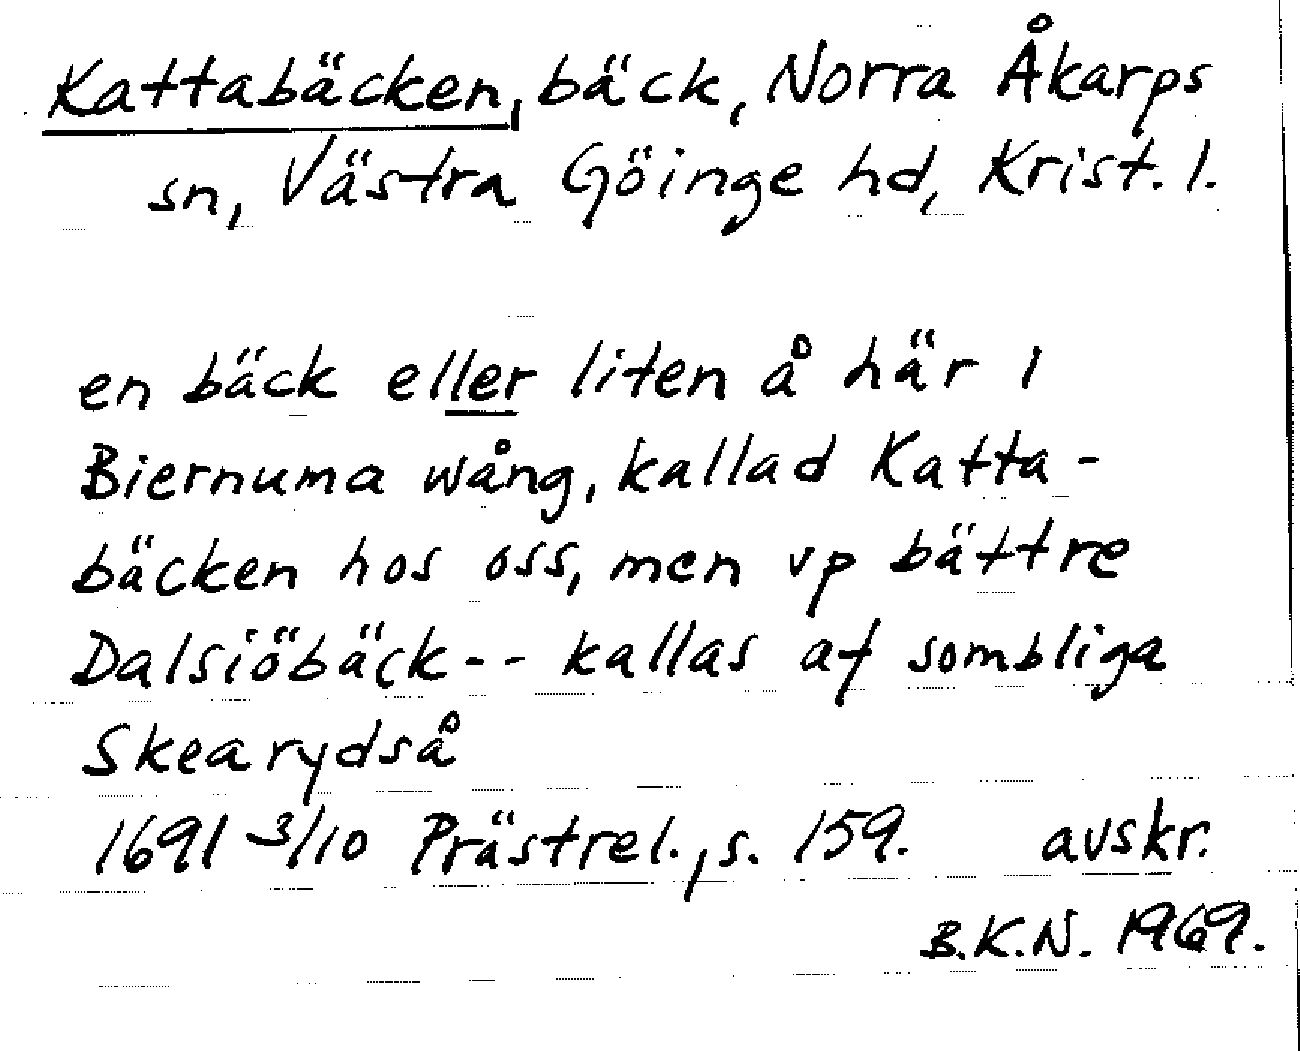 Kattabäcken, bäck, Norra Åkarps
sn, Västra Göinge hd, Krist. l.
en bäck eller liten å här i
Biernuma wång, kallad Katta-
bäcken hos oss, men vp bättre
Dalsiöbäck -- kallas af sombliga
Skearydså
1691 3/10 Prästrel., s. 159. avskr.
B.K.N. 1969.